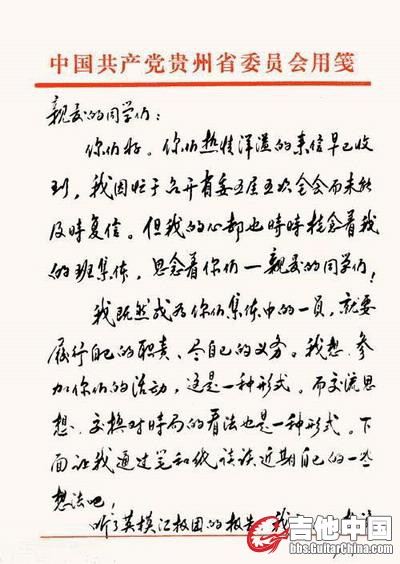 中国共产党贵州省委员会用笺
亲爱的同学们：
你们好。你们热情洋溢的来信早已收
到，我因忙于召开省委五届五次全会而未能
及时复信。但我的心却也時時挂念着我
的班集体，思念着你们—亲爱的同学们！
我既然成为你们集体中的一员，就要
履行自己的职责、尽自己的义务。我想，参
加你们的活动，这是一种形式。而交流思
想、交换对時局的看法也是一种形式。下
面让我通过笔和纸谈谈近期自己的一些
想法吧！
听了英模汇报团的报告，我
吉他中国
bbs.GuitarChina.com